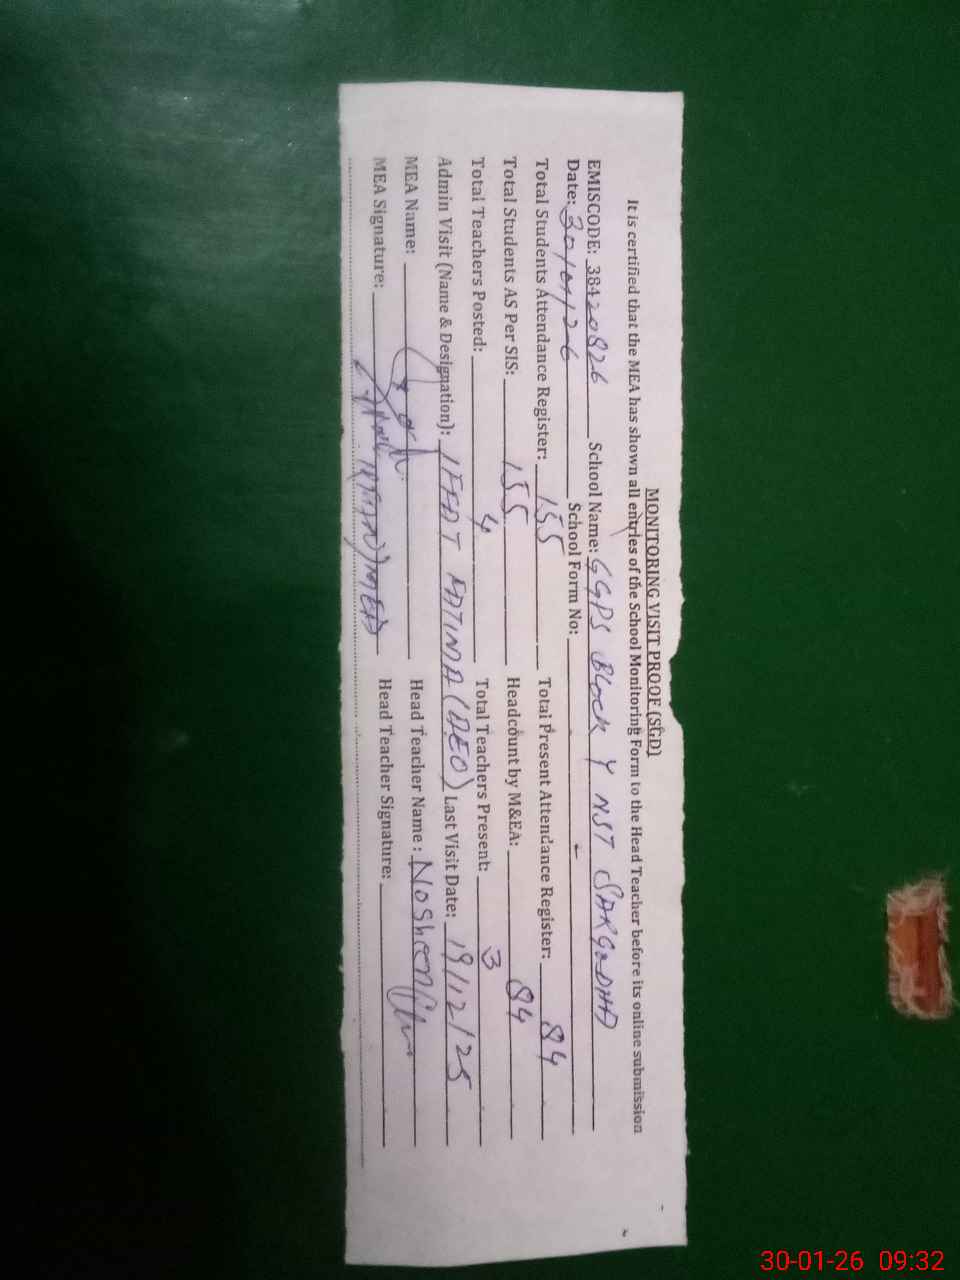 MONITORING VISIT PROOF (SGD)
It is certified that the MEA has shown all entries of the School Monitoring Form to the Head Teacher before its online submission
EMISCODE: 38420826 School Name: GGPS Block Y NST SARGODHA
Date: 30/01/26 School Form No:
Total Students Attendance Register: 155 Total Present Attendance Register: 84
Total Students AS Per SIS: 155 Headcount by M&EA: 84
Total Teachers Posted: 4 Total Teachers Present: 3
Admin Visit (Name & Designation): IFFAT FATIMA (AEO) Last Visit Date: 19/12/25
MEA Name: Head Teacher Name: Nosheen
MEA Signature: MEA Head Teacher Signature:
30-01-26 09:32